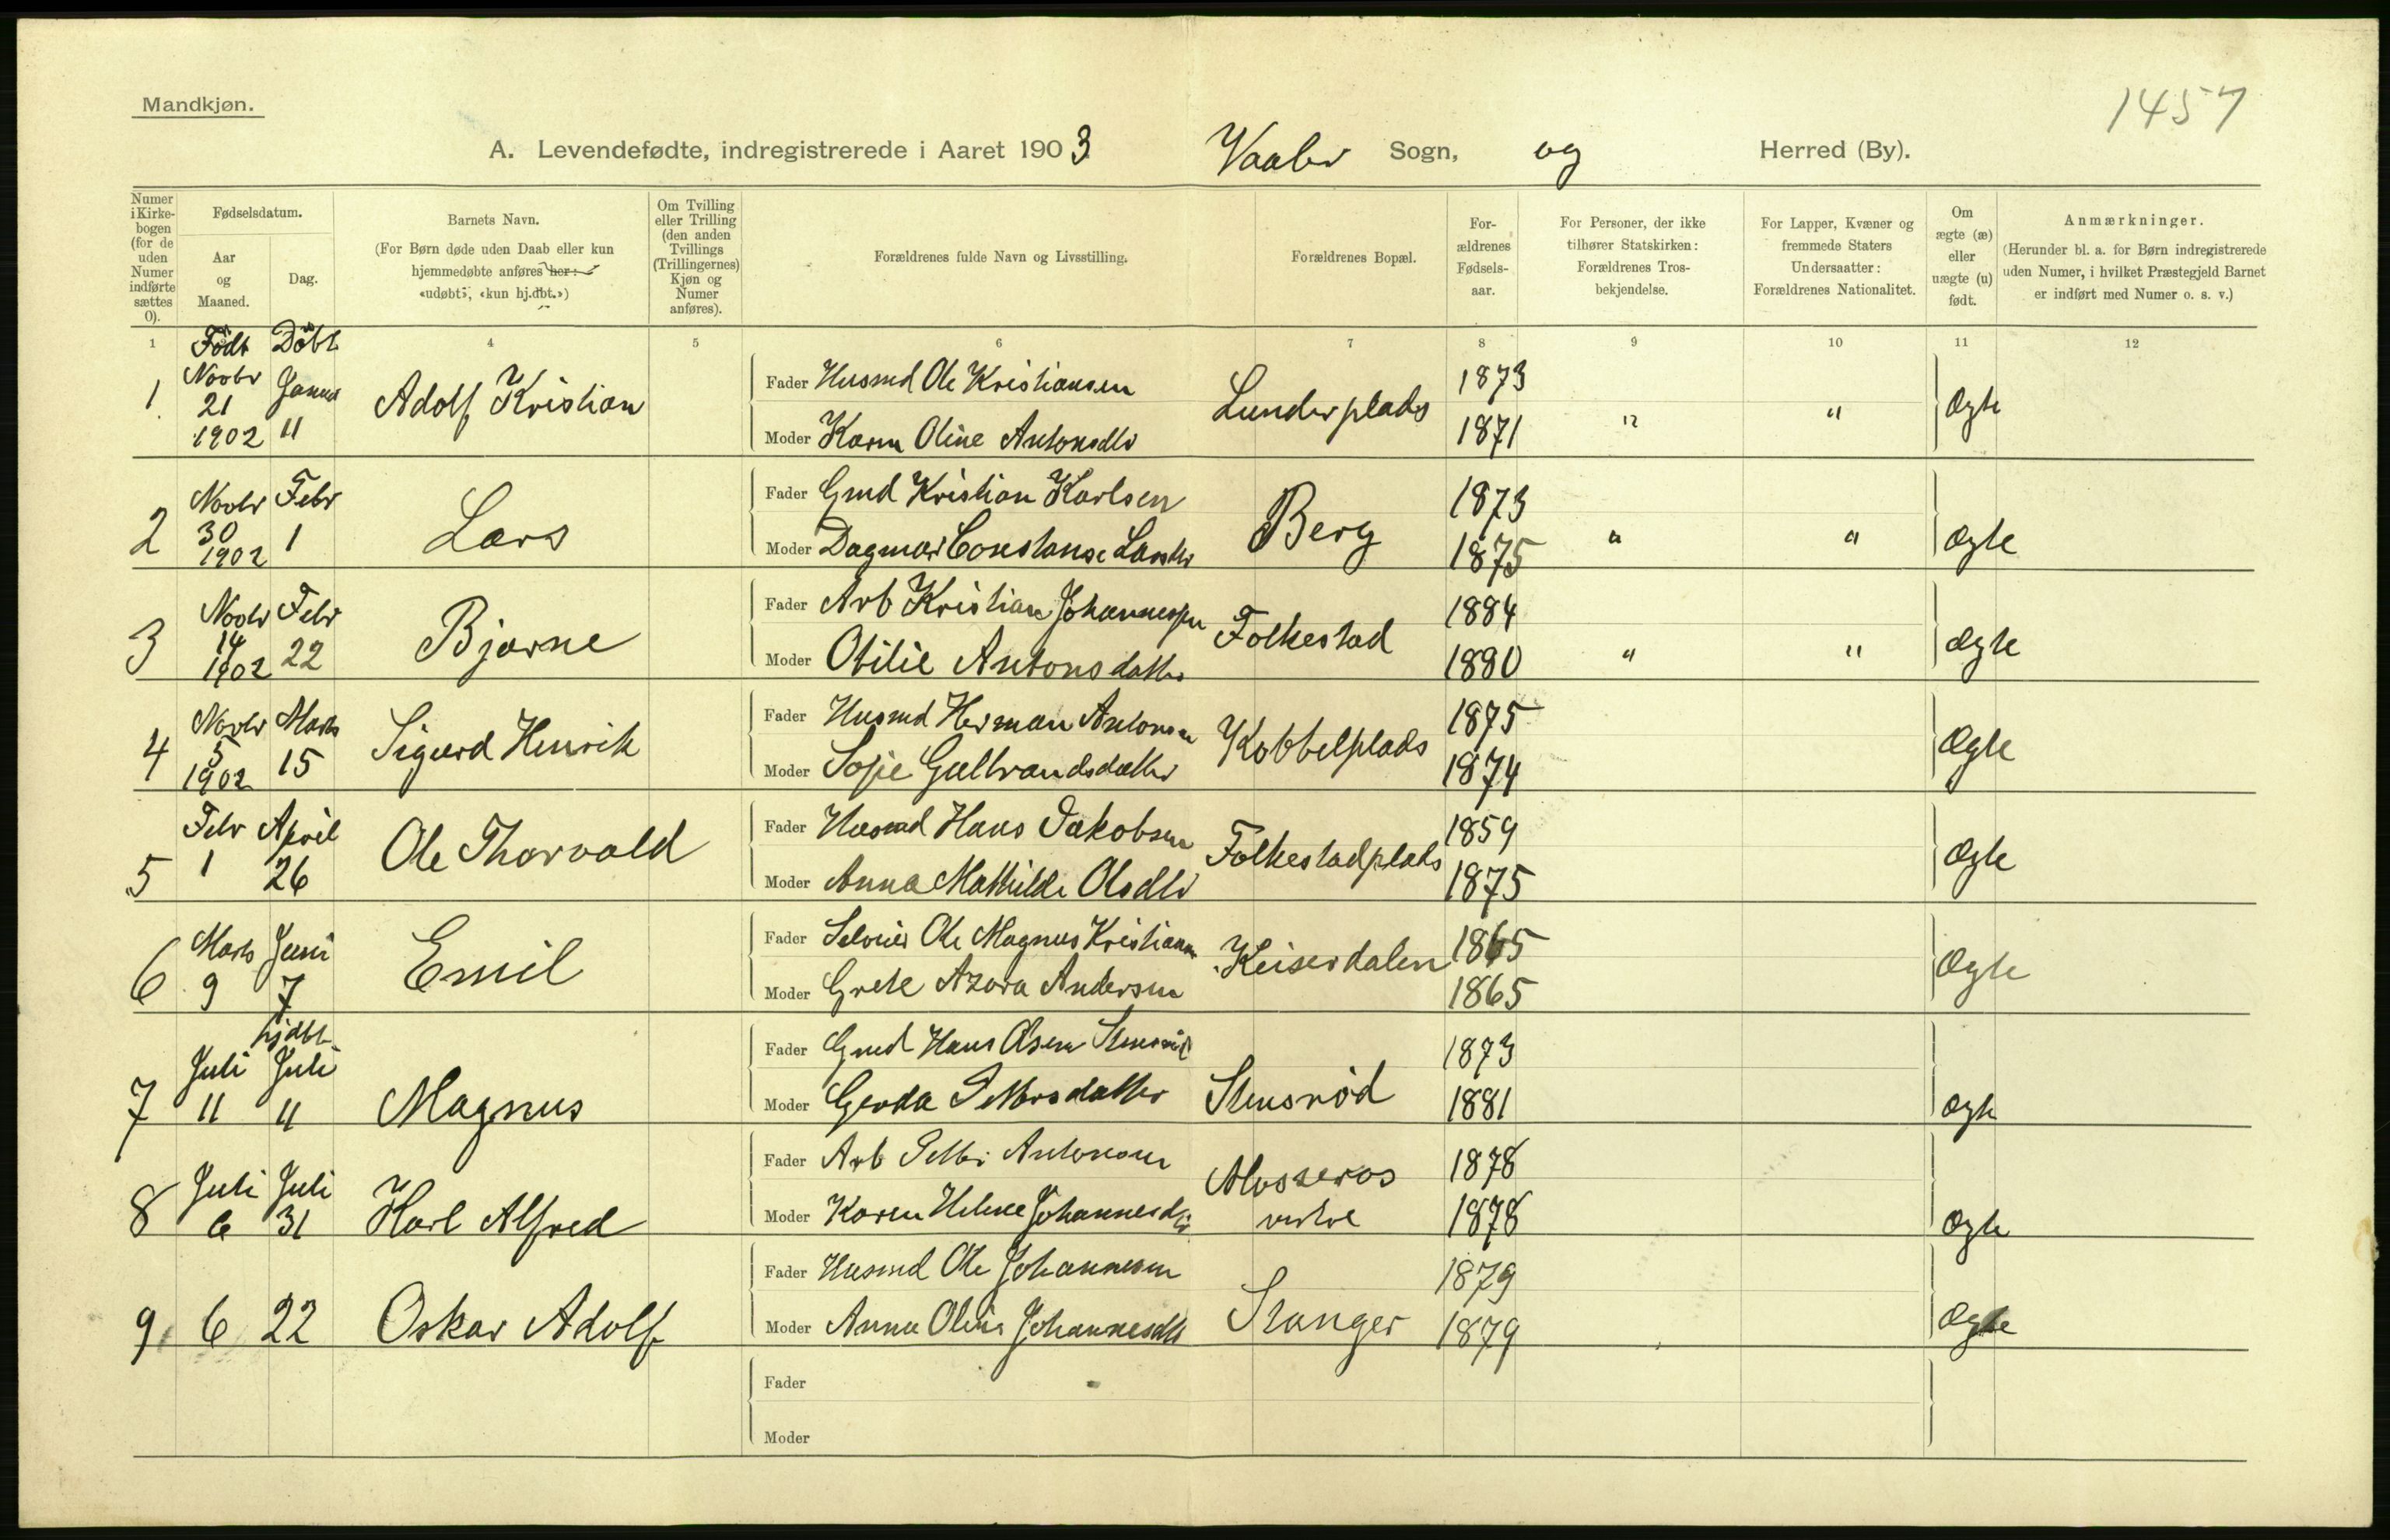 Mandkjøn.
1457
A. Levendefødte, indregistrerede i Aaret 1903 Vaaler Sogn, og Herred (By).
Numer i Kirke-bogen (for de uden Numer indførte sættes 0).
Fødselsdatum.
Aar og Maaned.
Dag.
Barnets Navn.
(For Børn døde uden Daab eller kun
hjemmedøbte anføres her:
«udøbt», «kun hj.dbt.»)
Om Tvilling
eller Trilling
(den anden
Tvillings
(Trillingernes)
Kjøn og
Numer
anføres).
Forældrenes fulde Navn og Livsstilling.
Forældrenes Bopæl.
For-
ældrenes
Fødsels-
aar.
For Personer, der ikke
tilhører Statskirken:
Forældrenes Tros-
bekjendelse.
For Lapper, Kvæner og
fremmede Staters
Undersaatter:
Forældrenes Nationalitet.
Om
ægte (æ)
eller
uægte (u)
født.
Anmærkninger.
(Herunder bl. a. for Børn indregistrerede
uden Numer, i hvilket Præstegjeld Barnet
er indført med Numer o. s. v.)
1 Født Døbt 4 5 6 7 8 9 10 11 12
1 Novbr 21 1902 Janua 11 Adolf Kristian
Fader Husmd Ole Kristiansen Lunderplads 1873
Moder Karen Oline Antonsdtr 1871 " " Ægte
2 Novbr 30 1902 Febr 1 Lars
Fader Gmd Kristian Karlsen Berg 1873
Moder Dagmar Constanse Larsdtr 1875 " " Ægte
3 Novbr 14 1902 Febr 22 Bjarne
Fader Arb Kristian Johannessen Folkestad 1884
Moder Otilie Antonsdatter 1880 " " Ægte
4 Novbr 5 1902 Marts 15 Sigurd Henrik
Fader Husmd Herman Antonsen Kobbelplads 1875
Moder Sofie Gulbrandsdatter 1874 Ægte
5 Febr 1 April 26 Ole Thorvald
Fader Husmd Hans Jakobsen Folkestadplads 1859
Moder Anna Mathilde Olsdtr 1875 Ægte
6 Marts 9 Juni 7 Emil
Fader Selveier Ole Magnus Kristiansen Keiserdalen 1865
Moder Grete Azora Andersen 1865 Ægte
7 Juli 11 hjdbt Juli 11 Magnus
Fader Gmd Hans Olsen Stensrød 1873
Moder Gerda Pettersdatter Stensrød 1881 Ægte
8 Juli 6 Juli 31 Karl Alfred
Fader Arb Petter Antonsen Mosseros 1878
Moder Karen Helene Johannesdtr vestre 1878 Ægte
9 6 22 Oskar Adolf
Fader Husmd Ole Johannesen Stanger 1879
Moder Anna Oline Johannesdtr 1879 Ægte
Fader
Moder